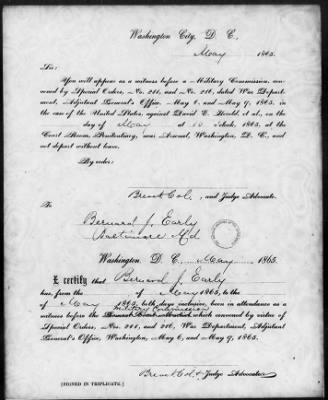 Washington City, D. C.,
May 1865.
Sir:
You will appear as a witness before a Military Commission, con-
vened by Special Orders, No. 211, and No. 216, dated War Depart-
ment, Adjutant General's Office, May 6, and May 9, 1865, in
the case of the United States, against David E. Herold, et al., on the
day of May at 10 o'clock, 1865, at the
Court Room, Penitentiary, near Arsenal, Washington, D. C., and
not depart without leave.
By order:
Brevet Col., and Judge Advocate.
To
Bernard J. Early
Baltimore Md
Washington, D. C. May 1865.
I certify that Bernard J. Early
has, from the of May 1865, to the
of May 1865, both days inclusive, been in attendance as a
Military Commission
witness before the which convened by virtue of
Special Orders, Nos. 211, and 216, War Department, Adjutant
General's Office, Washington, May 6, and May 9, 1865.
Brevet Col. & Judge Advocate.
[SIGNED IN TRIPLICATE.]